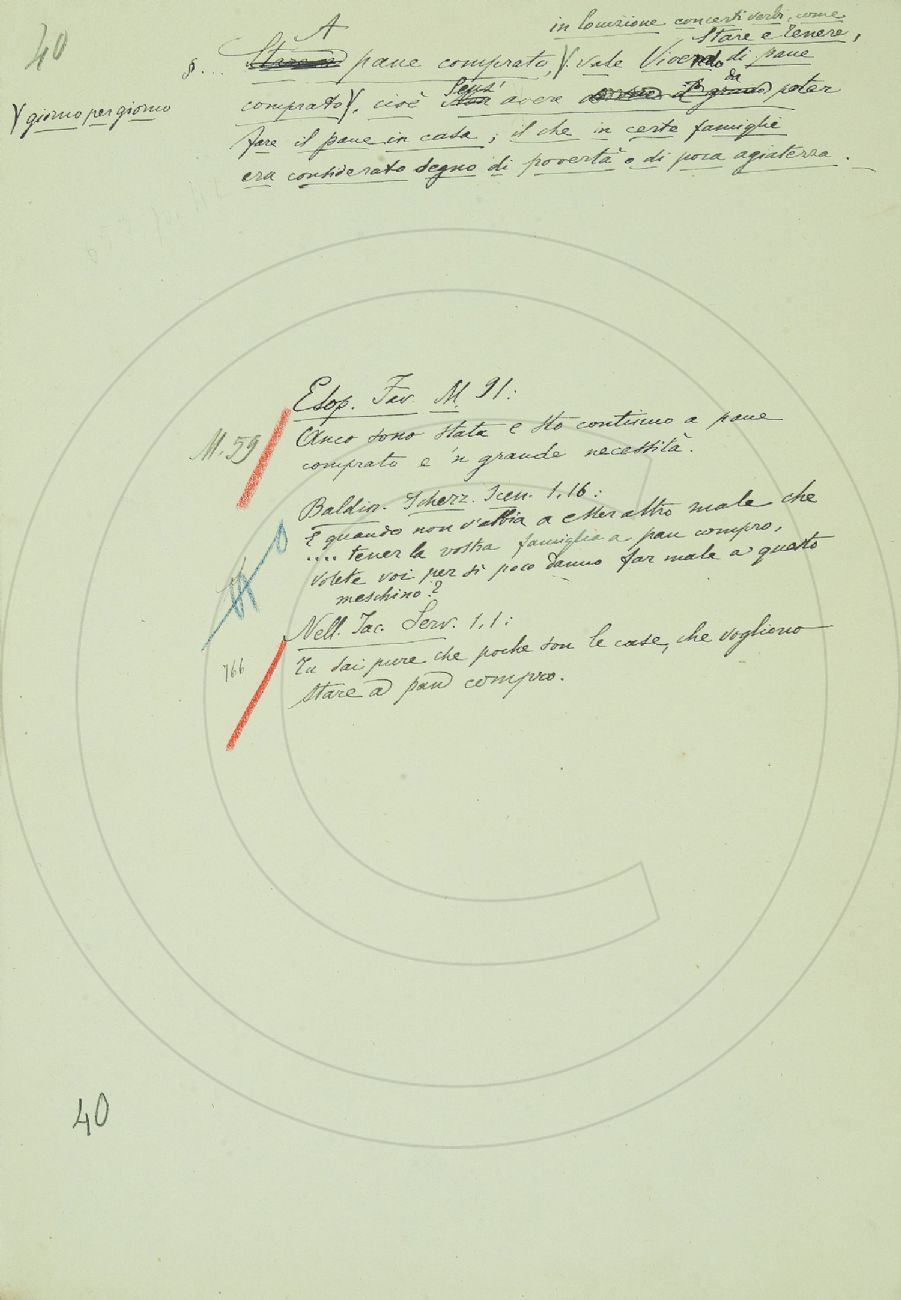 40
in locuzione con certi verbi, come
Stare e Tenere,
§... A pane comprato, Y vale Vivendo di pane
Y giorno per giorno
comprato Y, cioè senz' avere da poter
fare il pane in casa; il che in certe famiglie
era considerato segno di povertà o di poca agiatezza.
Esop. Fav. M. 91:
M. 59
Anco sono stata e sto continuo a pane
comprato e 'n grande necessità.
Baldin. Scherz. Scen. 1, 16:
E quando non v'abbia a esser altro male che
.... tener la vostra famiglia a pan compro,
volete voi per sì poco danno far male a questo
meschino?
Nell. Iac. Serv. 1, 1:
766
Tu sai pure che poche son le case, che vogliono
stare a pan compro.
40